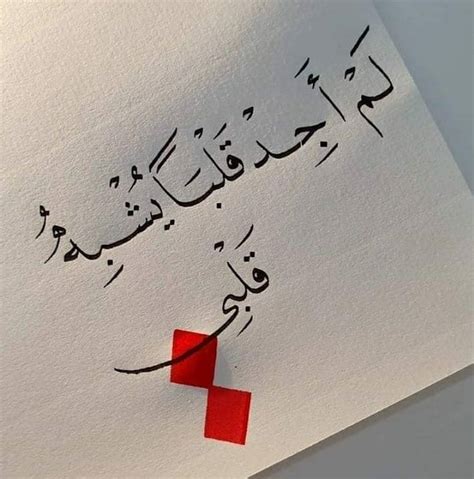 لَمْ أَجِدْ قَلْبَاً يُشْبِهُ
قَلبِي